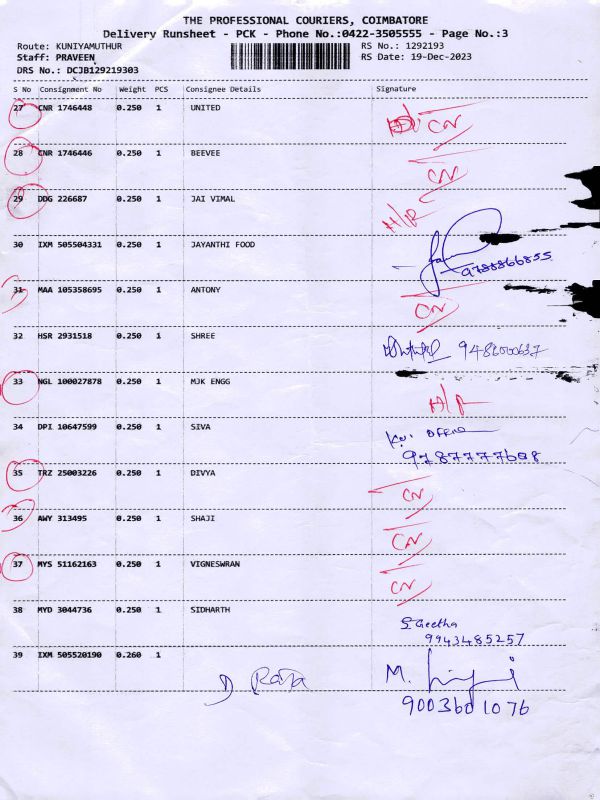 THE PROFESSIONAL COURIERS, COIMBATORE
Delivery Runsheet - PCK - Phone No.:0422-3505555 - Page No.:3
Route: KUNIYAMUTHUR RS No.: 1292193
Staff: PRAVEEN RS Date: 19-Dec-2023
DRS No.: DCJB129219303
S No Consignment No Weight PCS Consignee Details Signature
27 CNR 1746448 0.250 1 UNITED CN
28 CNR 1746446 0.250 1 BEEVEE CN
29 DDG 226687 0.250 1 JAI VIMAL H/R
30 IXM 505504331 0.250 1 JAYANTHI FOOD
9788866855
31 MAA 105358695 0.250 1 ANTONY CN
32 HSR 2931518 0.250 1 SHREE
33 NGL 100027878 0.250 1 MJK ENGG H/R
34 DPI 10647599 0.250 1 SIVA
9787777698
35 TRZ 25003226 0.250 1 DIVYA CN
36 AWY 313495 0.250 1 SHAJI CN
37 MYS 51162163 0.250 1 VIGNESWRAN CN
38 MYD 3044736 0.250 1 SIDHARTH S Geetha
9943485257
39 IXM 505520190 0.260 1 M.
D Raja
9003601076